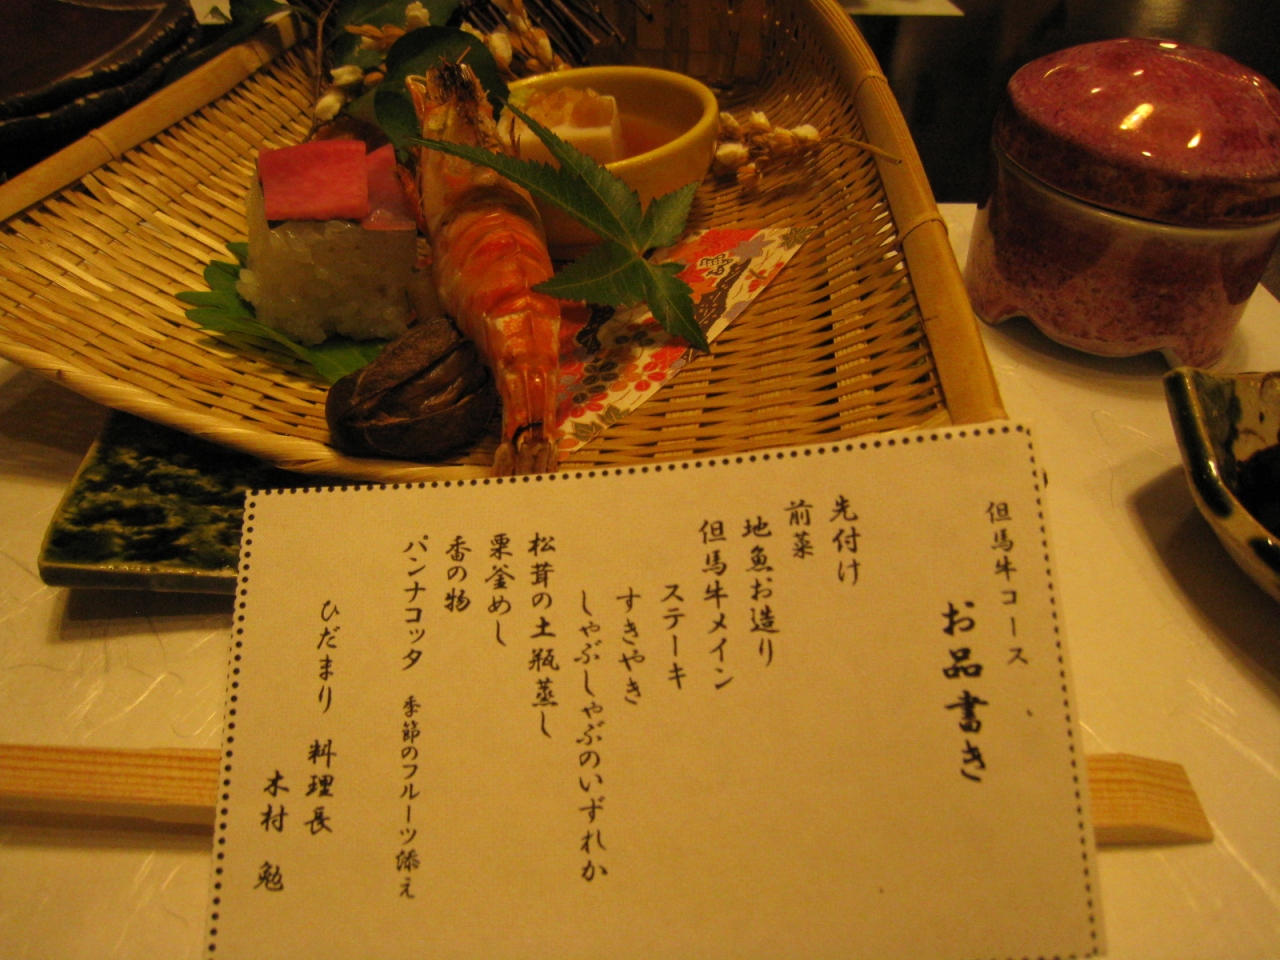 但馬牛コース
お品書き
先付け
前菜
地魚お造り
但馬牛メイン
ステーキ
すきやき
しゃぶしゃぶのいずれか
松茸の土瓶蒸し
栗釜めし
香の物
パンナコッタ 季節のフルーツ添え
ひだまり 料理長
木村 勉